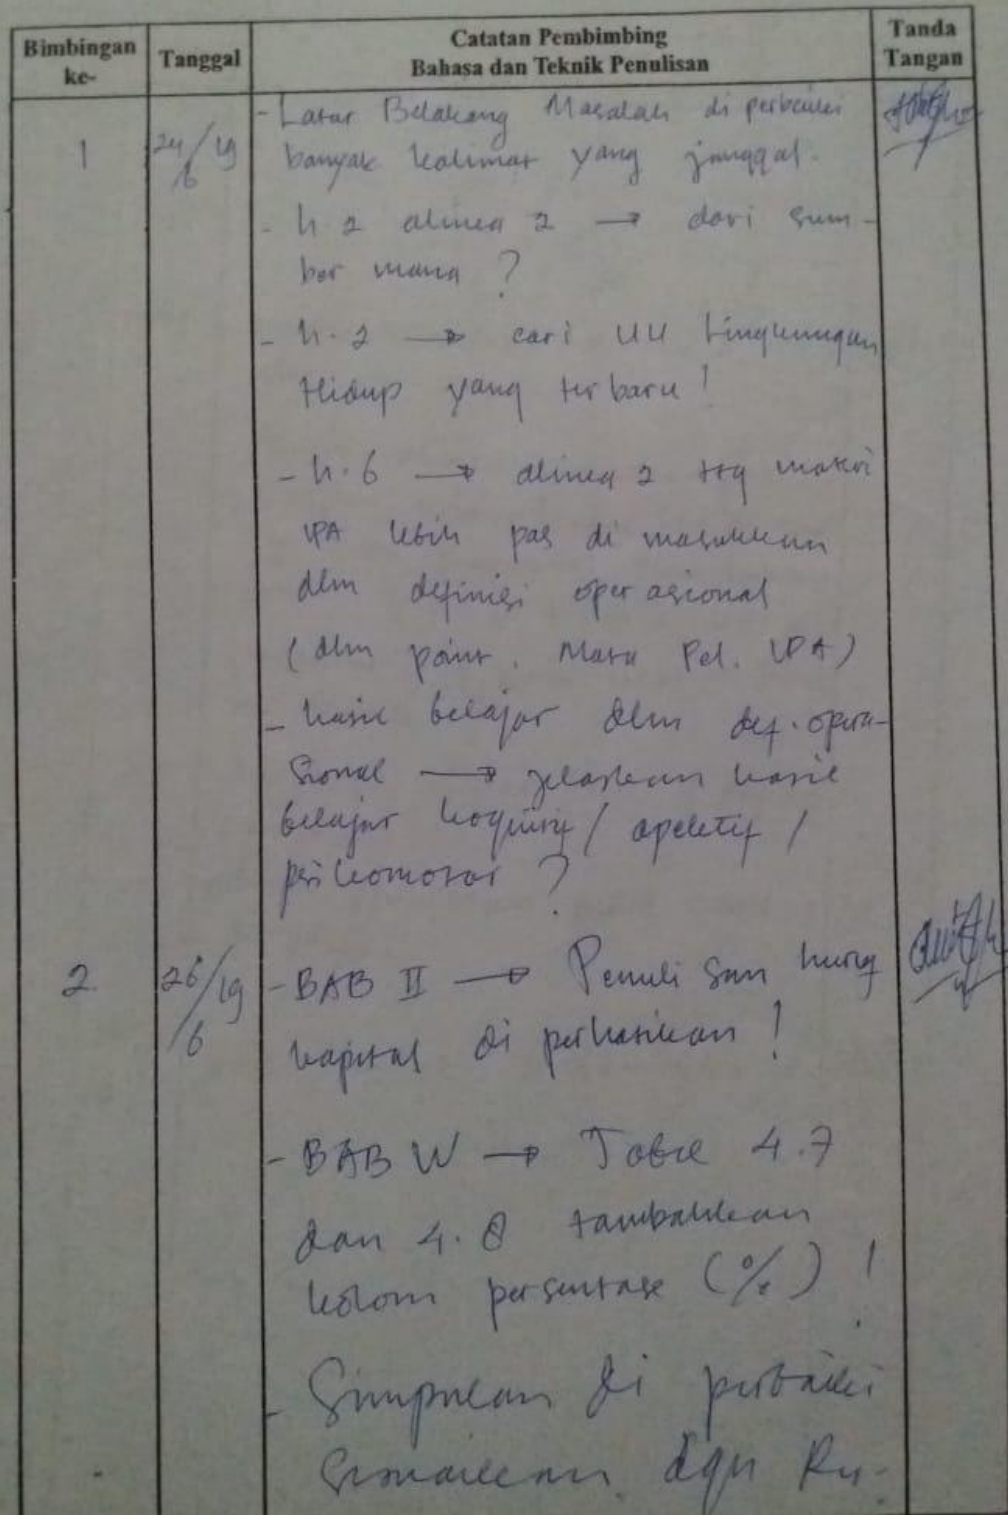 Bimbingan ke-
Tanggal
Catatan Pembimbing
Bahasa dan Teknik Penulisan
Tanda Tangan
1
24/6 19
- Latar Belakang Masalah di perbaiki
banyak kalimat yang janggal.
- h 2 alinea 2 → dari sum-
ber mana ?
- h. 2 → cari UU Lingkungan
Hidup yang terbaru !
- h. 6 → alinea 2 ttg materi
IPA lebih pas di masukkan
dlm definisi operasional
( dlm point . Mata Pel. IPA )
- hasil belajar dlm def. opera-
sional → jelaskan hasil
belajar kognitif / apektif /
psikomotor ?
2
26/6 19
- BAB II → Penulisan huruf
kapital di perhatikan !
- BAB IV → Tabel 4.7
dan 4.8 tambahkan
kolom persentase (%) !
- Simpulan di perbaiki
sesuaikan dgn Ru-